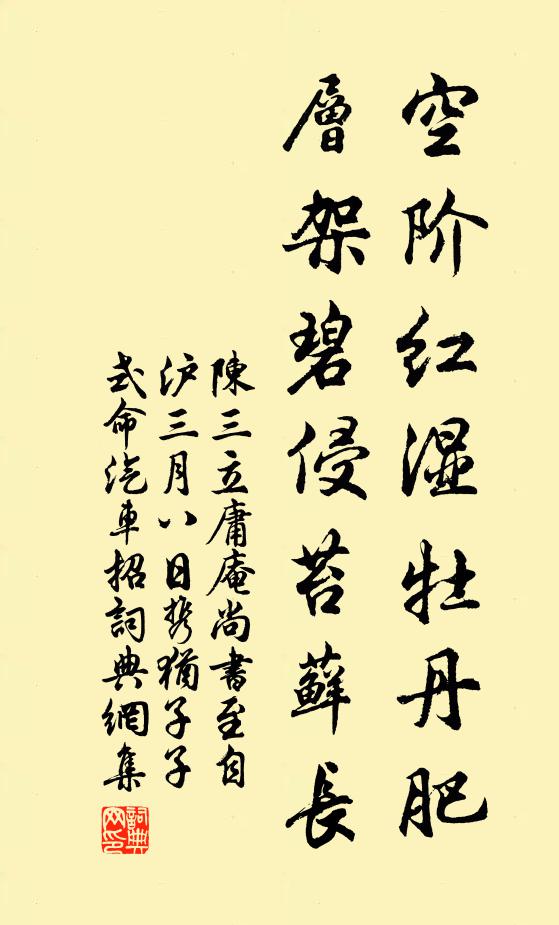 空阶红湿牡丹肥
層架碧侵苔蘚長
陳三立庸庵尚書至自
沪三月八日携猶子子
式命汽車招詞典網集
詞典网印